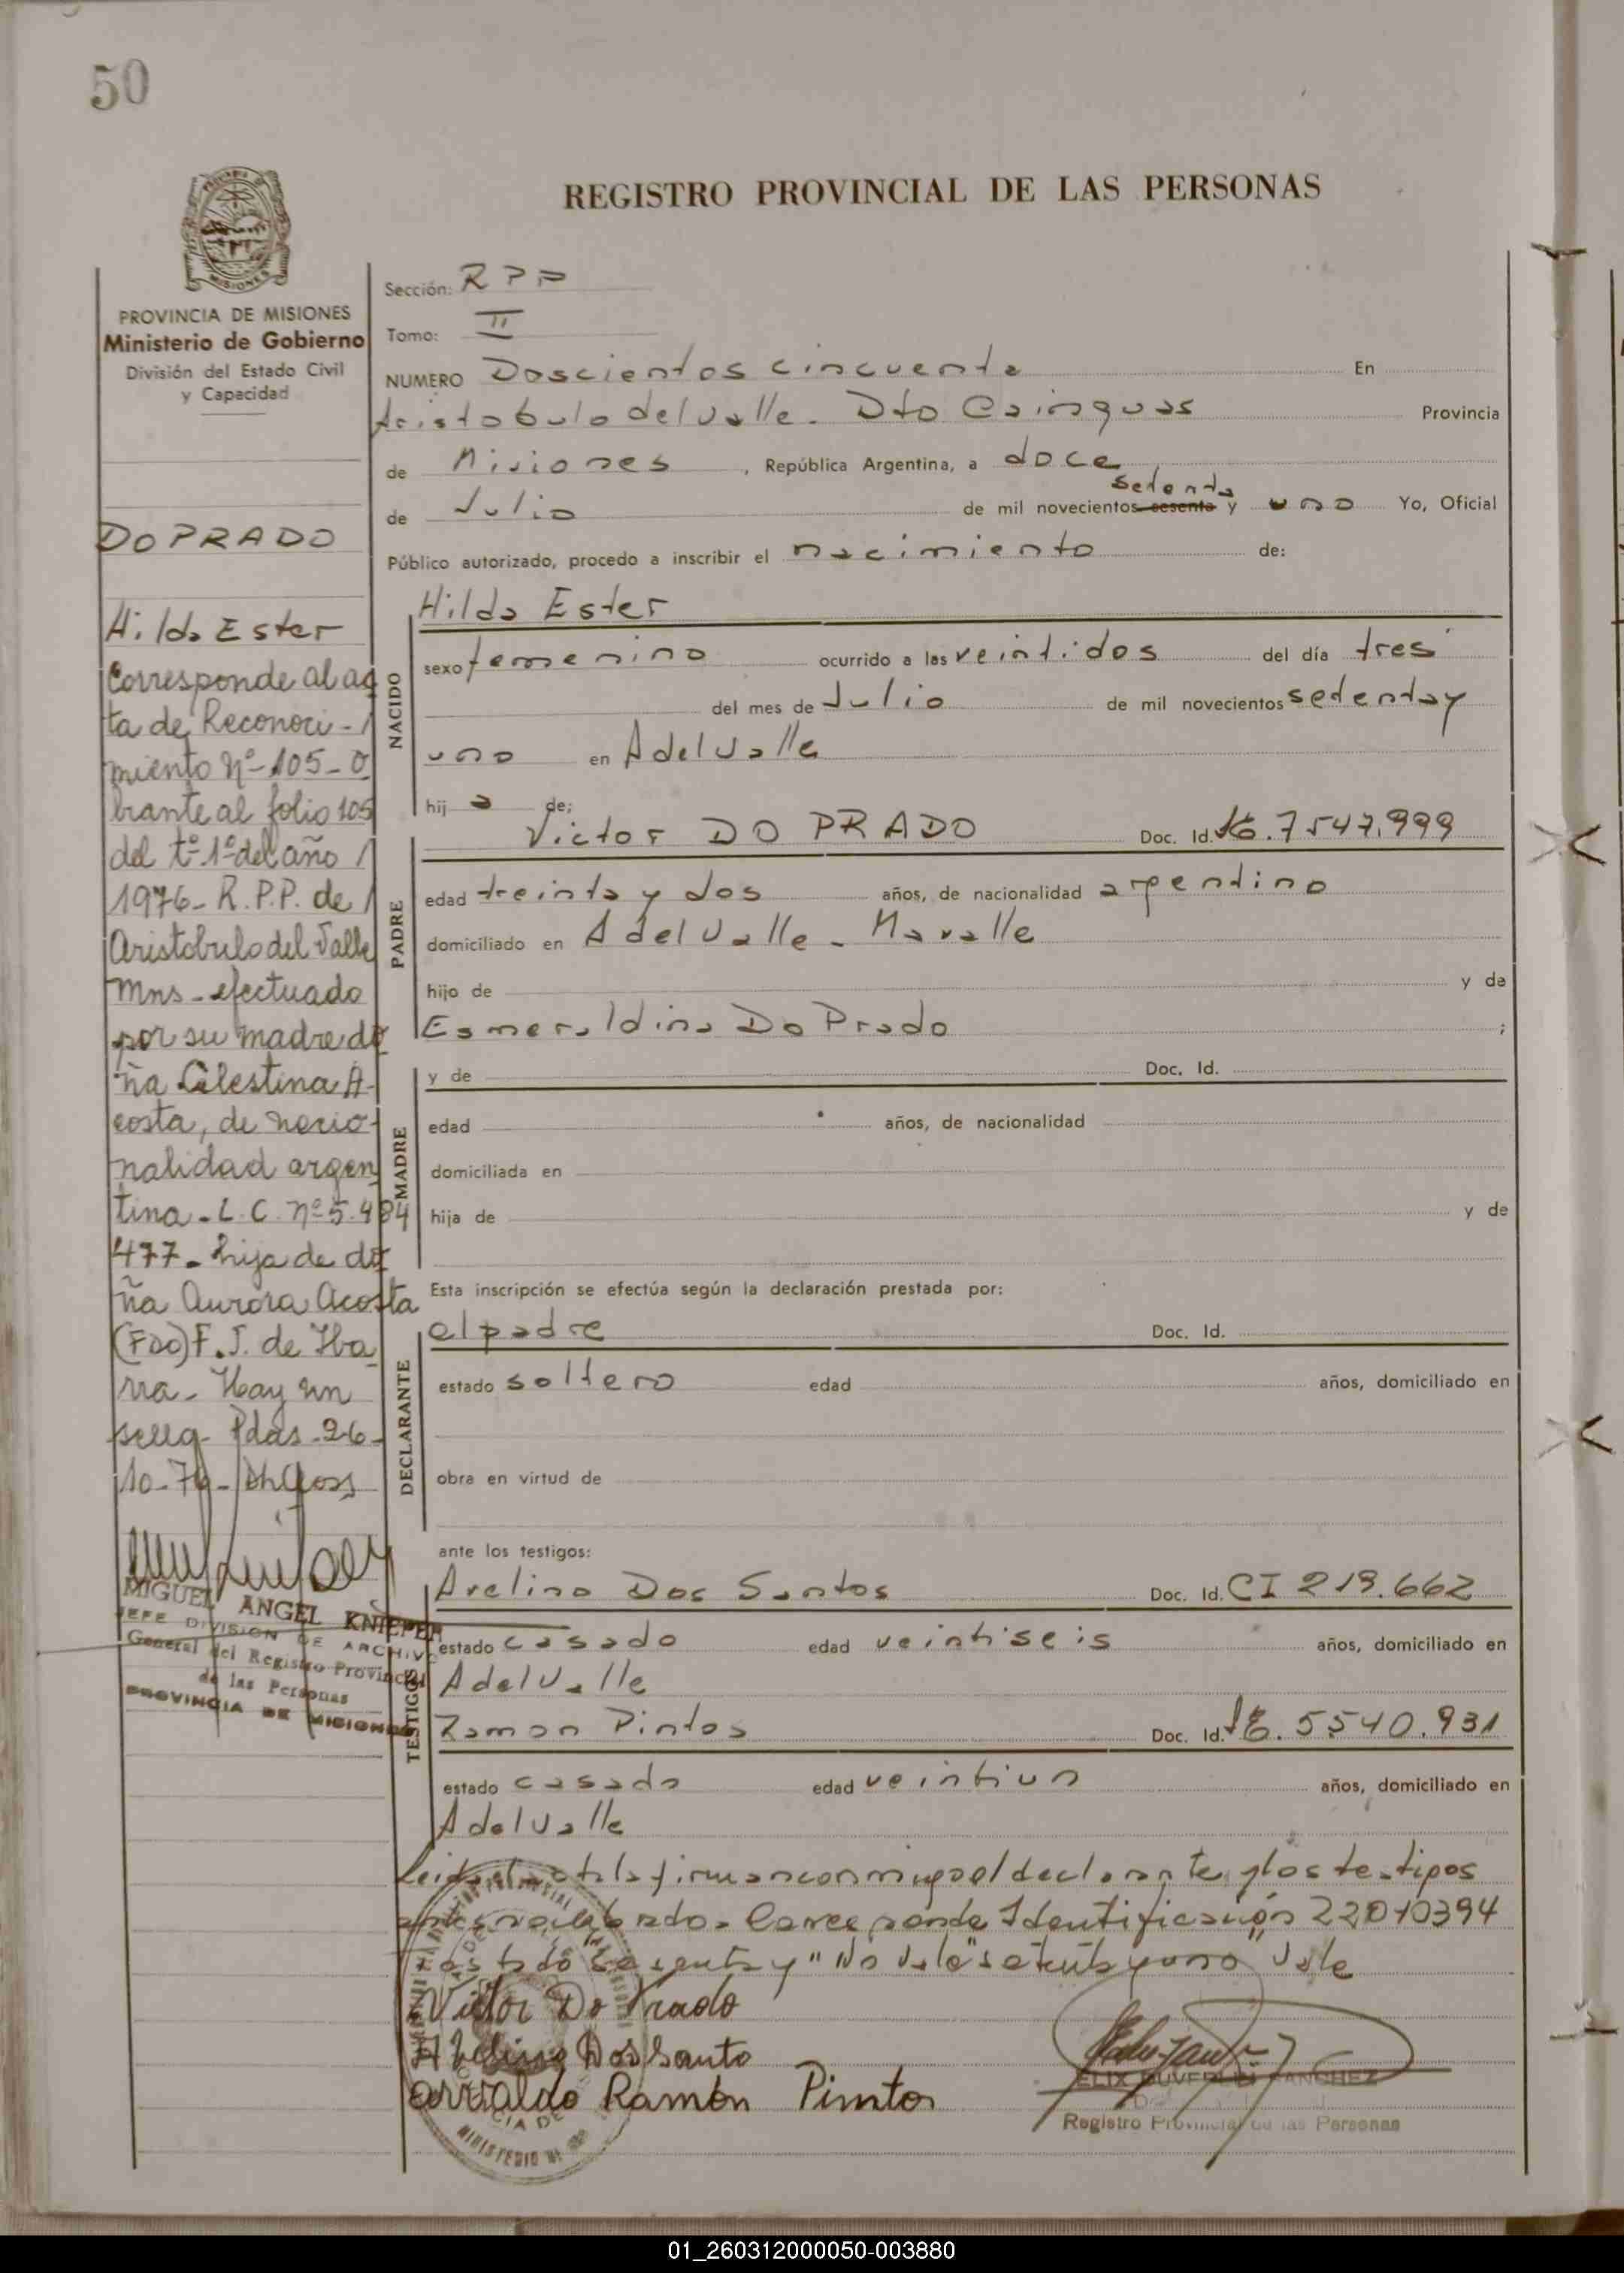 50
REGISTRO PROVINCIAL DE LAS PERSONAS
PROVINCIA DE MISIONES
Ministerio de Gobierno
División del Estado Civil
y Capacidad
DO PRADO
Hilda Ester
Corresponde al ac
ta de Reconoci-/
miento Nº-105-O
brante al folio 105
del tº-1º-del año /
1976- R.P.P. de /
Aristobulo del Valle
Mns-efectuado
por su madre do
ña Celestina A-
costa, de nacio-
nalidad argen
tina-L.C. nº5.484
477-hija de do
ña Aurora Acosta
(FDO) F.J. de Iba
rra- Hay un
sello- Pdas-26-
10-76-
MIGUEL ANGEL KNIEPER
JEFE DIVISION DE ARCHIVO
General del Registro Provincial
de las Personas
PROVINCIA DE MISIONES
Sección: R P P
Tomo: II
NUMERO Doscientos cincuenta En
Aristobulo del Valle - Dto Cainguas Provincia
de Misiones , República Argentina, a doce
setenta
de Julio de mil novecientos sesenta y uno Yo, Oficial
Público autorizado, procedo a inscribir el nacimiento de:
NACIDO
Hilda Ester
sexo femenino ocurrido a las veintidos del día tres
del mes de Julio de mil novecientos setenta y
uno en A del Valle
hij a de;
PADRE
Victor DO PRADO Doc. Id. 7547.999
edad treinta y dos años, de nacionalidad argentino
domiciliado en A del Valle -
hijo de y de
Esmeraldina Do Prado ;
MADRE
y de Doc. Id.
edad años, de nacionalidad
domiciliada en
hija de y de
Esta inscripción se efectúa según la declaración prestada por:
DECLARANTE
el padre Doc. Id.
estado soltero edad años, domiciliado en
obra en virtud de
ante los testigos:
TESTIGOS
Avelino Dos Santos Doc. Id. CI 219.662
estado casado edad veintiseis años, domiciliado en
A del Valle
Ramon Pintos Doc. Id. 5540.931
estado casado edad veintiun años, domiciliado en
A del Valle
Leida el acta la firman conmigo el declarante y los testigos
Corresponde Identificación 22010394
Testado "sesenta y" No Vale "setenta y uno" Vale
Victor Do Prado
Abelino Dos Santo
Ramón Pintos
FELIX DUVERLIN SANCHEZ
Registro Provincial de las Personas
01_260312000050-003880